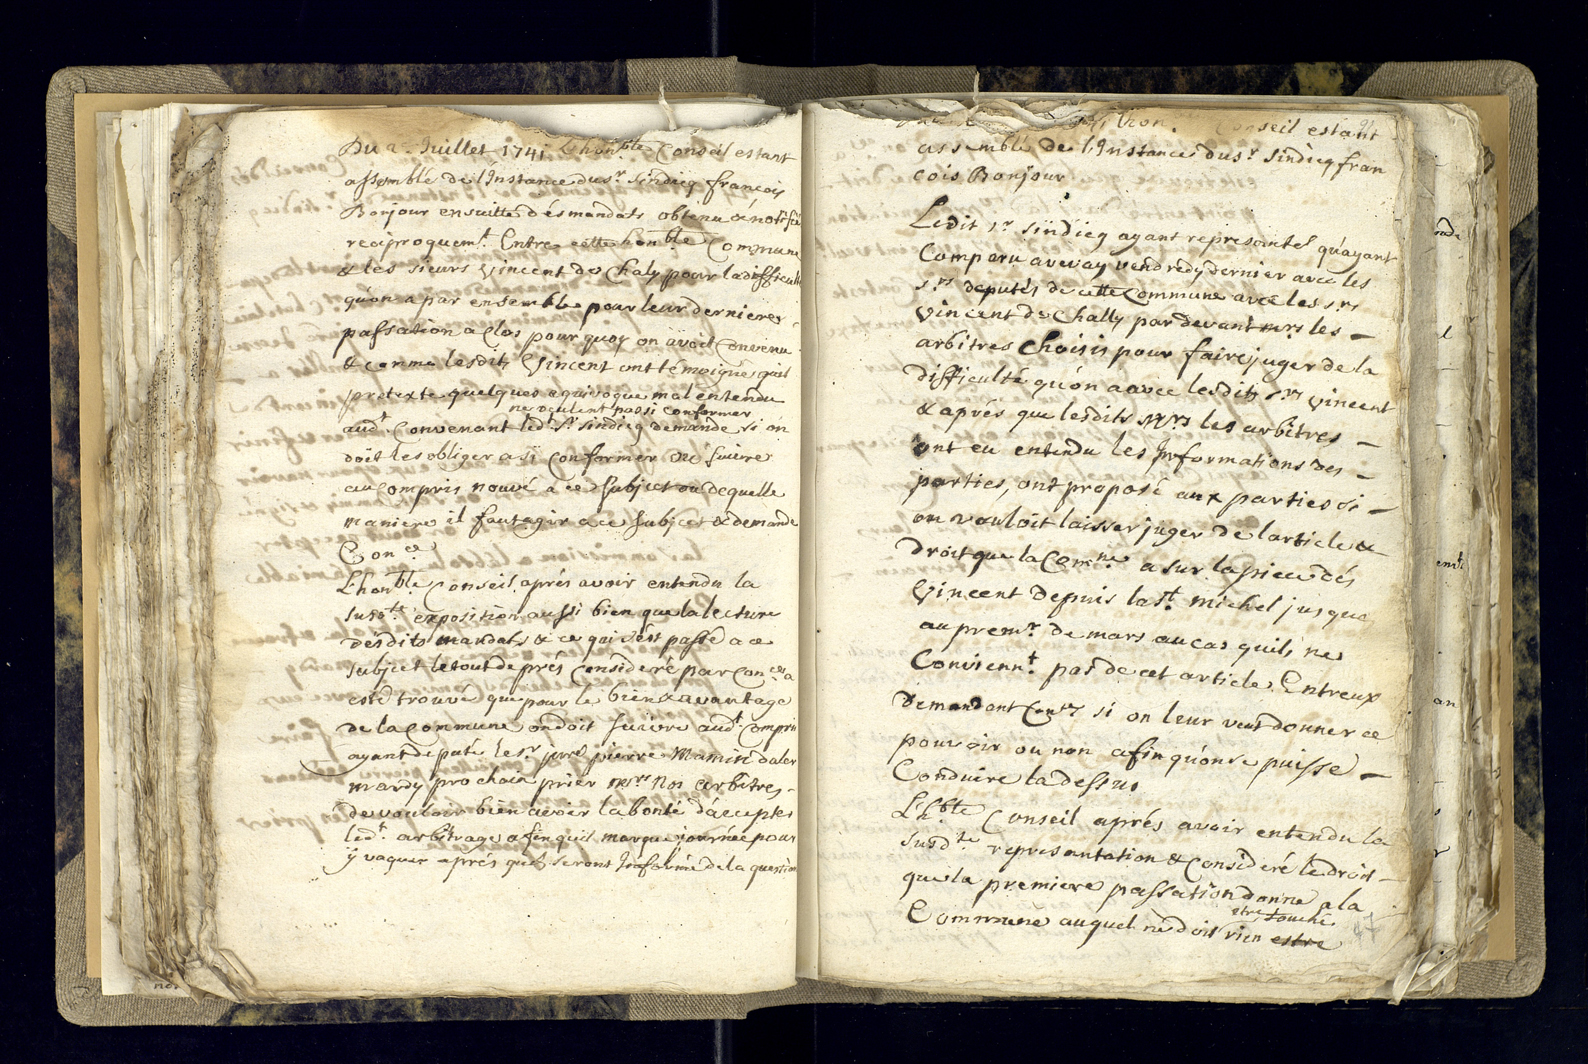 Du 2e Juillet 1741 L'hon.ble Conseil estant
assemblé de l'Instance du sr. sindicq francois
Bonjour ensuitte dés mandats obtenu & notifié
reciproquemt. Entre cette honble Commune
& les sieurs Vincent de Chaly pour la difficulté
qu'on a par ensemble pour leur derniere
passation a Clos pourquoy on avoit Convenu
& comme lesdits Vincent ont témoigné qu'il
pretexte quelques equivoque mal entendu
ne veulent pas si conformer
audt. Convenant ledt. Sr. sindicq demande si on
doit les obliger a si Conformer ou suivre
au Compris nouvé a ce Subject ou de quelle
maniere il faut agir a ce Subject & demande
Con.ce
L'honble Conseil aprés avoir entendu la
susdte exposition aussi bien que la lecture
désdits mandats & ce qui s'est passé a ce
subject le tout de prés Consideré par Con.ce a
esté trouvé que pour le bien & avantage
de la Commune on doit suivre audt. Compris
ayant deputé le sr. juré pierre Mamin d'aler
mardy prochain prier mrs. Nos arbitres
de vouloir bien avoir la bonté d'accepter
ledt. arbitrage afin qu'il marque journée pour
ÿ vaquer aprés qu'ils seront Informé de la question
Conseil estant
assemblé de l'Instance du sr. sindicq fran
cois Bonjour
Ledit sr sindicq ayant representé qu'ayant
Comparu avevay vendredy dernier avec les
srs deputés de cette Commune avec les srs
Vincent de Chally par devant mrs les
arbitres Choisis pour faire juger de la
difficulté qu'on a avec lesdits srs Vincent
& aprés que lesdits mrs les arbitres
ont eu entendu les Informations des
parties, ont proposé aux parties si
on vouloit laisser juger de l'article &
droit que la Comne a sur la piece dés
Vincent depuis la st. michel jusque
au premr. de mars au cas quils ne
Conviennt. pas de cet article Entreux
demandent Con.ce si on leur veut donner ce
pouvoir ou non afin qu'on se puisse
Conduire la dessus
L'hble Conseil aprés avoir entendu la
susdte representation & Consideré le droit
que la premiere passation donne a la
estre touché
Commune auquel ne doit rien estre